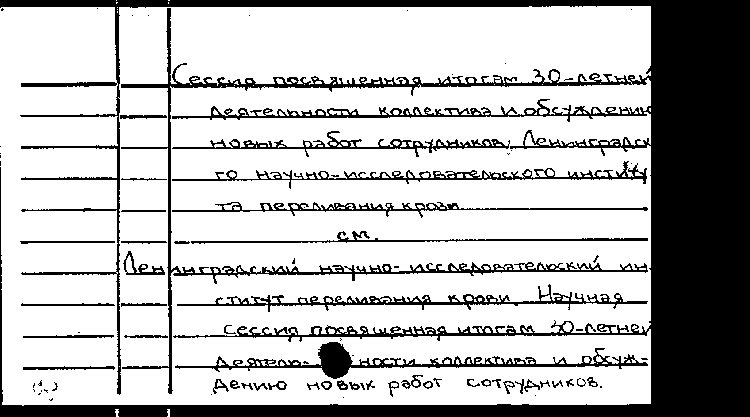 Сессия, посвященная итогам 30-летней
деятельности коллектива и обсуждению
новых работ сотрудников, Ленинградск
го научно-исследовательского институ
та переливания крови
см.
Ленинградский научно-исследовательский ин
ститут переливания крови. Научная
сессия, посвященная итогам 30-летней
деятель- ности коллектива и обсуж-
дению новых работ сотрудников.